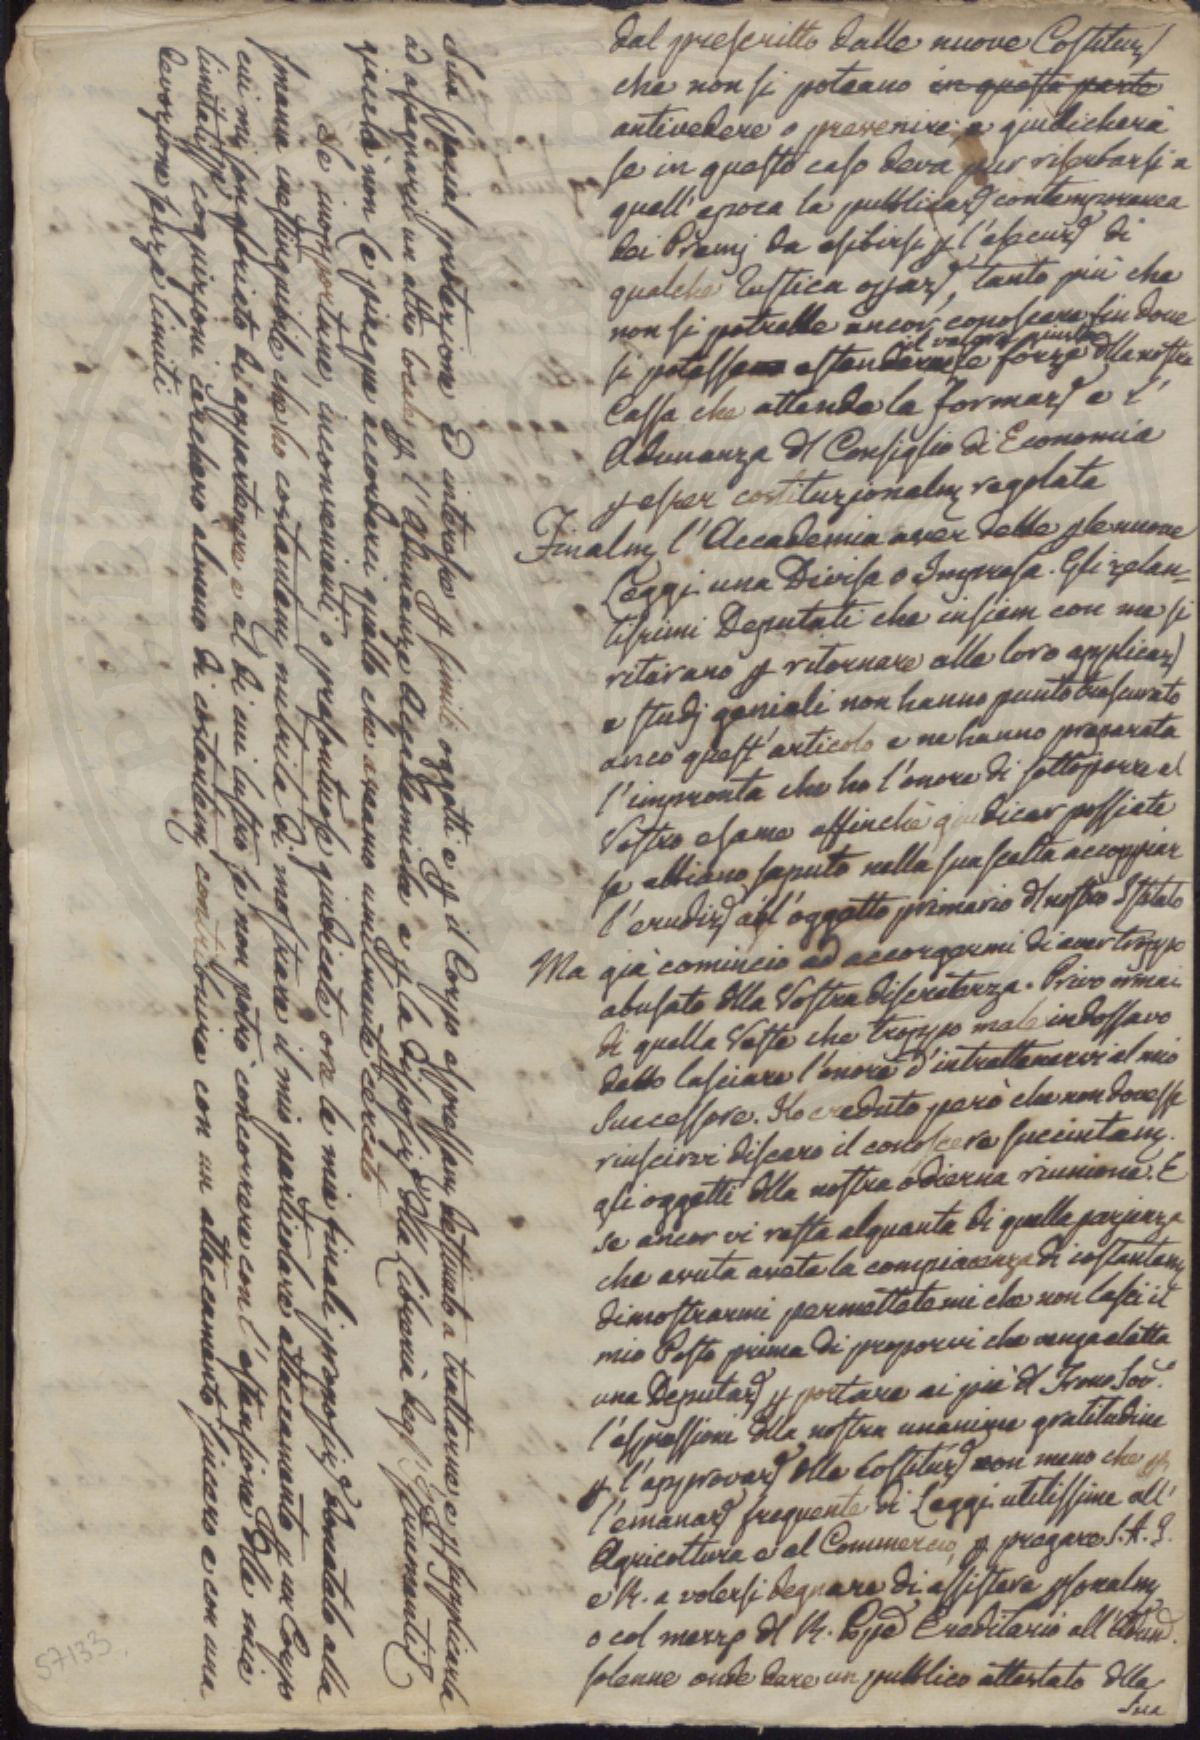 dal prescritto dalle nuove Costituz.
che non si poteano in questa parte
antivedere o prevenire, e giudicherà
se in questo caso deva pur riserbarsi a
quell'epoca la pubblicaz. contemporanea
dei Premj da esibirsi p l'esecuz. di
qualche rustica opaz., tanto più che
non si potrebbe ancor conoscere fin dove
il valore
si potesse estendere le forze dlla nostra
Cassa che attende la formaz. e l'
Adunanza dl Consiglio di Economia
p esser costituzionalm regolata
Finalm l'Accademia aver debbe p le nuove
Leggi una Divisa o Impresa. Gli zelan-
tissimi Deputati che insiem con me si
ritirano p ritornare alle loro applicaz.
e studj geniali non hanno punto trascurato
anco quest'articolo e ne hanno preparata
l'impronta che ho l'onore di sottoporre al
Vostro esame affinchè giudicar possiate
se abbiano saputo nella sua scelta accoppiar
l'erudiz. all'oggetto primario dl nostro Istituto
Ma già comincio ad accorgermi di aver troppo
abusato dlla Vostra discretezza. Privo ormai
di quella Veste che troppo male indossavo
debbo lasciare l'onore d'intrattenervi al mio
Successore. Ho creduto però che non dovesse
riuscirvi discaro il conoscere succintam.
gli oggetti dlla nostra odierna riunione. E
se ancor vi resta alquanta di quella pazienza
che avuta avete la compiacenza di costantem
dimostrarmi permettetemi che non lasci il
mio Posto prima di proporvi che venga eletta
una Deputaz. p portare ai piè dl Trono Sov.o
l'espressioni dlla nostra unanime gratitudine
p l'approvaz. dlle Costituz. non meno che p
l'emanaz. frequente di Leggi utilissime all'
Agricoltura e al Commercio, p pregare S. A. I.
e R. a volersi degnare di assistere psonalm
o col mezzo dl R. Ppe Ereditario all'Adun.
solenne onde dare un pubblico attestato dlla
Sua
dlla special protezione ed interesse p simile oggetti e p il Corpo espressam destinato a trattarne, e p supplicarla
ad assegnarci un altro locale p l'Adunanze Accademiche e p la disposiz. dlla Libreria degl'Istrumenti &
giacchè non le piacque accordarci quello che avevamo umilmente cercato
Se inopportune, inconvenienti, o presontuose giudicate ora le mie finali proposiz. donatelo alla
smania inestinguibile che ho costantem nutrita di mostrare il mio particolare attaccamento p un Corpo
cui mi son gloriato di appartenere e al di cui lustro se non potrò concorrere con l'estensione dlle mie
limitatisse. cognizioni cercherò almeno di costantem contribuire con un attaccamento sincero e con una
devozione senza limiti
57133